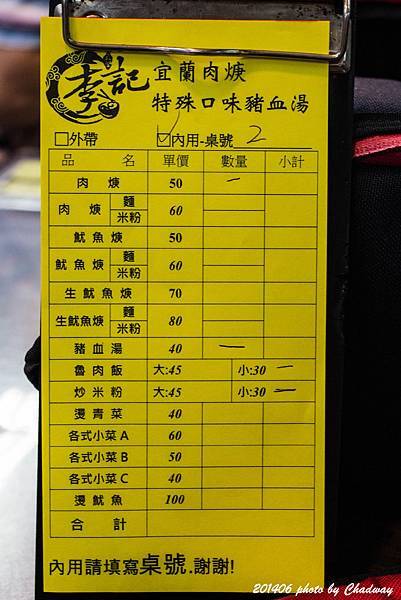 李記
宜蘭肉焿
特殊口味豬血湯
□外帶 ☑內用-桌號 2
品 名 單價 數量 小計
肉 焿 50 一
肉 焿 麵 米粉 60
魷魚焿 50
魷魚焿 麵 米粉 60
生魷魚焿 70
生魷魚焿 麵 米粉 80
豬血湯 40 一
魯肉飯 大:45 小:30 一
炒米粉 大:45 小:30 一
燙青菜 40
各式小菜A 60
各式小菜B 50
各式小菜C 40
燙魷魚 100
合 計
內用請填寫桌號.謝謝!
201406 photo by Chadway